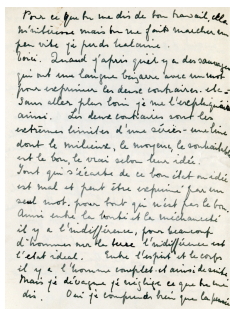 Pour ce que tu me dis de ton travail, cela
m'intéresse mais tu me fais marcher un
peu vite je perds haleine.
Voici. Quand j'appris qu'il y a des sauvages
qui ont une langue bizarre avec un mot
pour exprimer les deux contraires. etc-
Sans aller plus loin je me l'expliquais
ainsi. Les deux contraires sont les
extrêmes limites d'une série - une ligne
dont le milieu, le moyen, le souhaitable
est le bon, le vrai selon leur idée.
Tout qui s'écarte de ce bon état ou idée
est mal et peut être exprimé par un
seul mot. pour tout qui n'est pas le bon.
Ainsi entre la bonté et la méchanceté
il y a l'indifférence, pour beaucoup
d'hommes sur la terre l'indifférence est
l'état idéal. Entre l'esprit et le corps
il y a l'homme complet et ainsi de suite.
Mais je divague je néglige ce que tu me
dis. Oui je comprends bien que la pensée